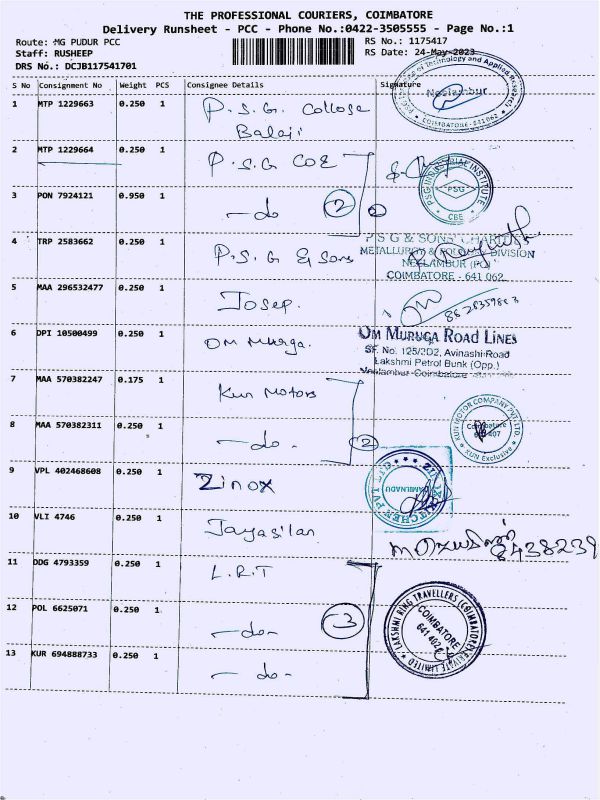 THE PROFESSIONAL COURIERS, COIMBATORE
Delivery Runsheet - PCC - Phone No.:0422-3505555 - Page No.:1
Route: MG PUDUR PCC RS No.: 1175417
Staff: RUSHEEP RS Date: 24-May-2023
DRS No.: DCJB117541701
S No Consignment No Weight PCS Consignee Details Signature
1 MTP 1229663 0.250 1 P.S.G. College
Balaji
of Technology and Applied Research
Neelambur
COIMBATORE - 641 062
2 MTP 1229664 0.250 1 P.S.G COE
PSG INDUSTRIAL INSTITUTE
PSG
CBE
3 PON 7924121 0.950 1 - do 2
4 TRP 2583662 0.250 1 P.S.G & Sons
P S G & SONS' CHARITIES
METALLURGY & FOUNDRY DIVISION
NEELAMBUR (PO)
COIMBATORE - 641 062
5 MAA 296532477 0.250 1 Josep.
6 DPI 10500499 0.250 1 OM Muruga.
OM MURUGA ROAD LINES
SF. No. 125/2D2, Avinashi Road
Lakshmi Petrol Bunk (Opp.)
Neelambur Coimbatore
7 MAA 570382247 0.175 1 Kun Motors
KUN MOTOR COMPANY PVT. LTD.
Coimbatore
KUN Exclusive
8 MAA 570382311 0.250 1 - do - 2
9 VPL 402468608 0.250 1 Zinox
KITCHEN PVT LTD
TAMILNADU
10 VLI 4746 0.250 1 Jayasilan
8438239
11 DDG 4793359 0.250 1 L.R.T
12 POL 6625071 0.250 1 - do - 3
LAKSHMI RING TRAVELLERS (COIMBATORE) PRIVATE LIMITED
COIMBATORE
641 402
13 KUR 694888733 0.250 1 - do -